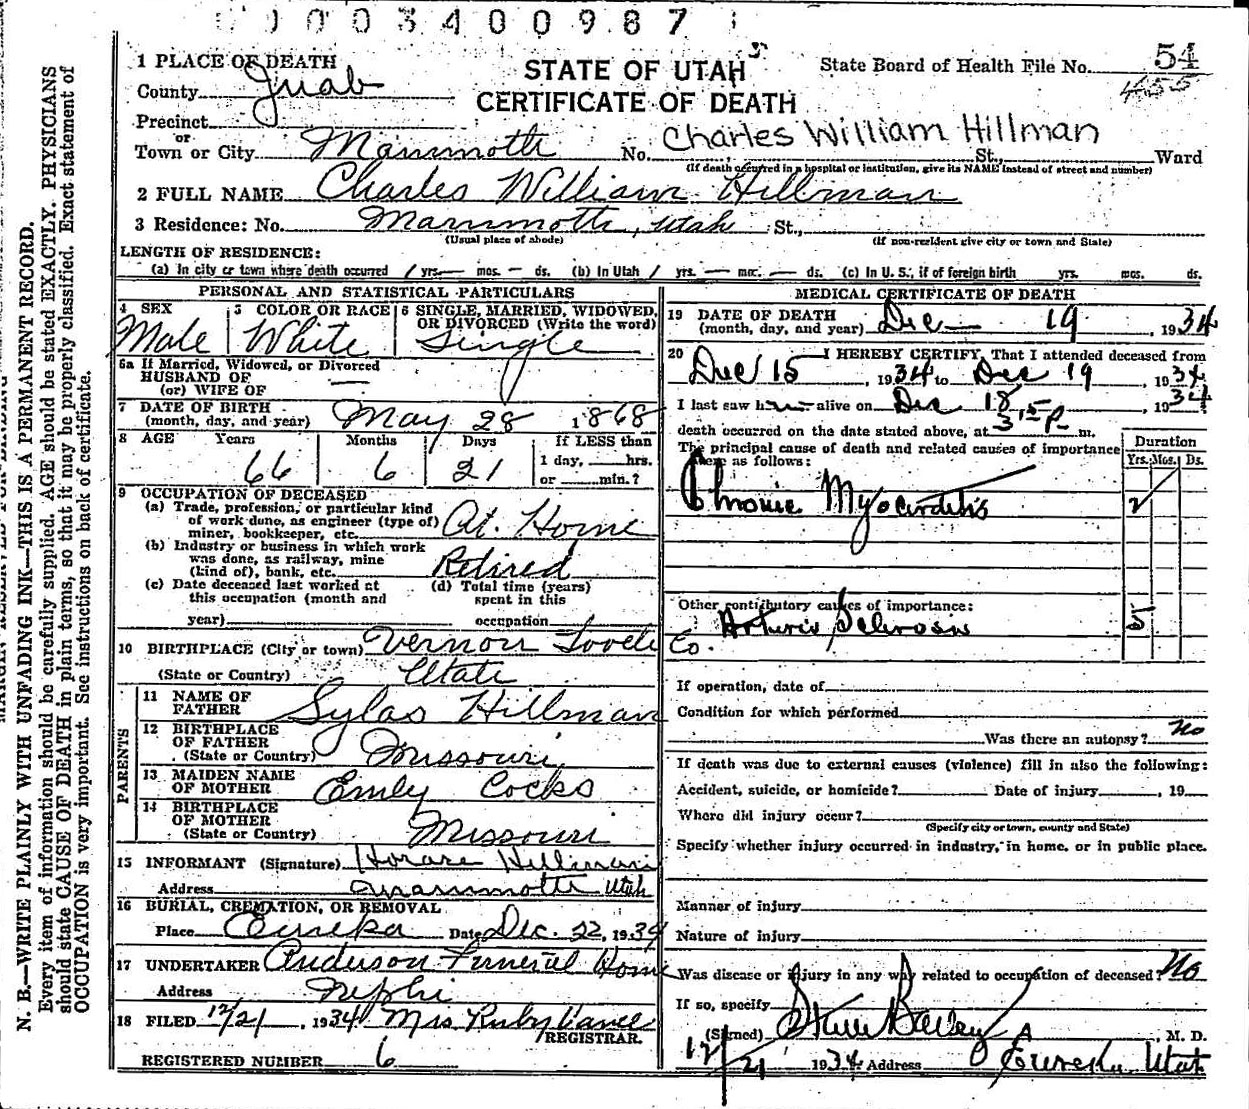 0003400987
1 PLACE OF DEATH
County Juab
STATE OF UTAH
CERTIFICATE OF DEATH
State Board of Health File No. 54
455
Precinct
or
Town or City Mammoth No. Charles William Hillman St., Ward
(If death occurred in a hospital or institution, give its NAME instead of street and number)
2 FULL NAME Charles William Hillman
3 Residence: No. Mammoth, Utah St.,
(Usual place of abode) (If non-resident give city or town and State)
LENGTH OF RESIDENCE:
(a) In city or town where death occurred 1 yrs.— mos. — ds. (b) In Utah 1 yrs. — mos. — ds. (c) In U. S., if of foreign birth yrs. mos. ds.
PERSONAL AND STATISTICAL PARTICULARS
4 SEX Male
5 COLOR OR RACE White
6 SINGLE, MARRIED, WIDOWED, OR DIVORCED (Write the word) Single
6a If Married, Widowed, or Divorced
HUSBAND OF
(or) WIFE OF —
7 DATE OF BIRTH
(month, day, and year) May 28 1868
8 AGE Years Months Days If LESS than
66 6 21 1 day, hrs.
or min.?
9 OCCUPATION OF DECEASED
(a) Trade, profession, or particular kind
of work done, as engineer (type of)
miner, bookkeeper, etc. At. Home
(b) Industry or business in which work
was done, as railway, mine
(kind of), bank, etc. Retired
(c) Date deceased last worked at
this occupation (month and
year)
(d) Total time (years)
spent in this
occupation
10 BIRTHPLACE (City or town) Vernon Tooele Co.
(State or Country) Utah
PARENTS
11 NAME OF
FATHER Sylas Hillman
12 BIRTHPLACE
OF FATHER
(State or Country) Missouri
13 MAIDEN NAME
OF MOTHER Emily Cocks
14 BIRTHPLACE
OF MOTHER
(State or Country) Missouri
15 INFORMANT (Signature) Horace Hillman
Address Mammoth Utah
16 BURIAL, CREMATION, OR REMOVAL
Place Eureka Date Dec. 22, 1934
17 UNDERTAKER Anderson Funeral Home
Address Nephi
18 FILED 12/21, 1934 Mrs Ruby
REGISTRAR.
REGISTERED NUMBER 6
MEDICAL CERTIFICATE OF DEATH
19 DATE OF DEATH
(month, day, and year) Dec — 19, 1934
20 I HEREBY CERTIFY, That I attended deceased from
Dec 15, 1934 to Dec 19 1934
I last saw h alive on Dec 18, 1934
death occurred on the date stated above, at 3 15 P m.
The principal cause of death and related causes of importance
were as follows:
Duration
Yrs. Mos. Ds.
Chronic Myocarditis 2
Other contributory causes of importance:
Arterio Sclerosis
If operation, date of
Condition for which performed
Was there an autopsy? No
If death was due to external causes (violence) fill in also the following:
Accident, suicide, or homicide? Date of injury , 19
Where did injury occur?
(Specify city or town, county and State)
Specify whether injury occurred in industry, in home, or in public place.
Manner of injury
Nature of injury
Was disease or injury in any way related to occupation of deceased? No
If so, specify
(Signed) Steele Bailey , M. D.
12/21 1934 Address Eureka Utah
N. B.—WRITE PLAINLY WITH UNFADING INK—THIS IS A PERMANENT RECORD.
Every item of information should be carefully supplied. AGE should be stated EXACTLY. PHYSICIANS
should state CAUSE OF DEATH in plain terms, so that it may be properly classified. Exact statement of
OCCUPATION is very important. See instructions on back of certificate.